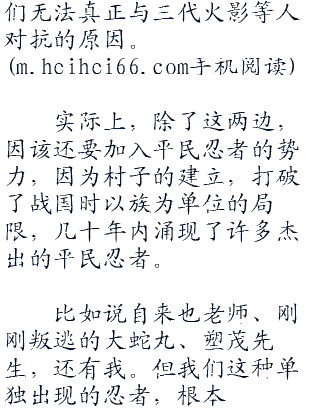 们无法真正与三代火影等人
对抗的原因。
(m.hcihci66.com手机阅读)
实际上，除了这两边，
因该还要加入平民忍者的势
力，因为村子的建立，打破
了战国时以族为单位的局
限，几十年内涌现了许多杰
出的平民忍者。
比如说自来也老师、刚
刚叛逃的大蛇丸、塑茂先
生，还有我。但我们这种单
独出现的忍者，根本